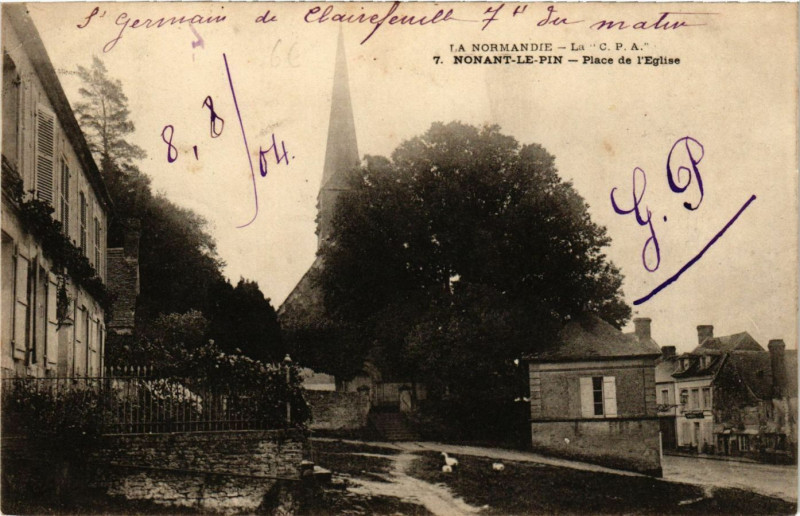 St Germain de Clairefeuille 7H du matin
LA NORMANDIE – La "C. P. A."
7. NONANT-LE-PIN – Place de l'Eglise
66
8,8/04.
G.P